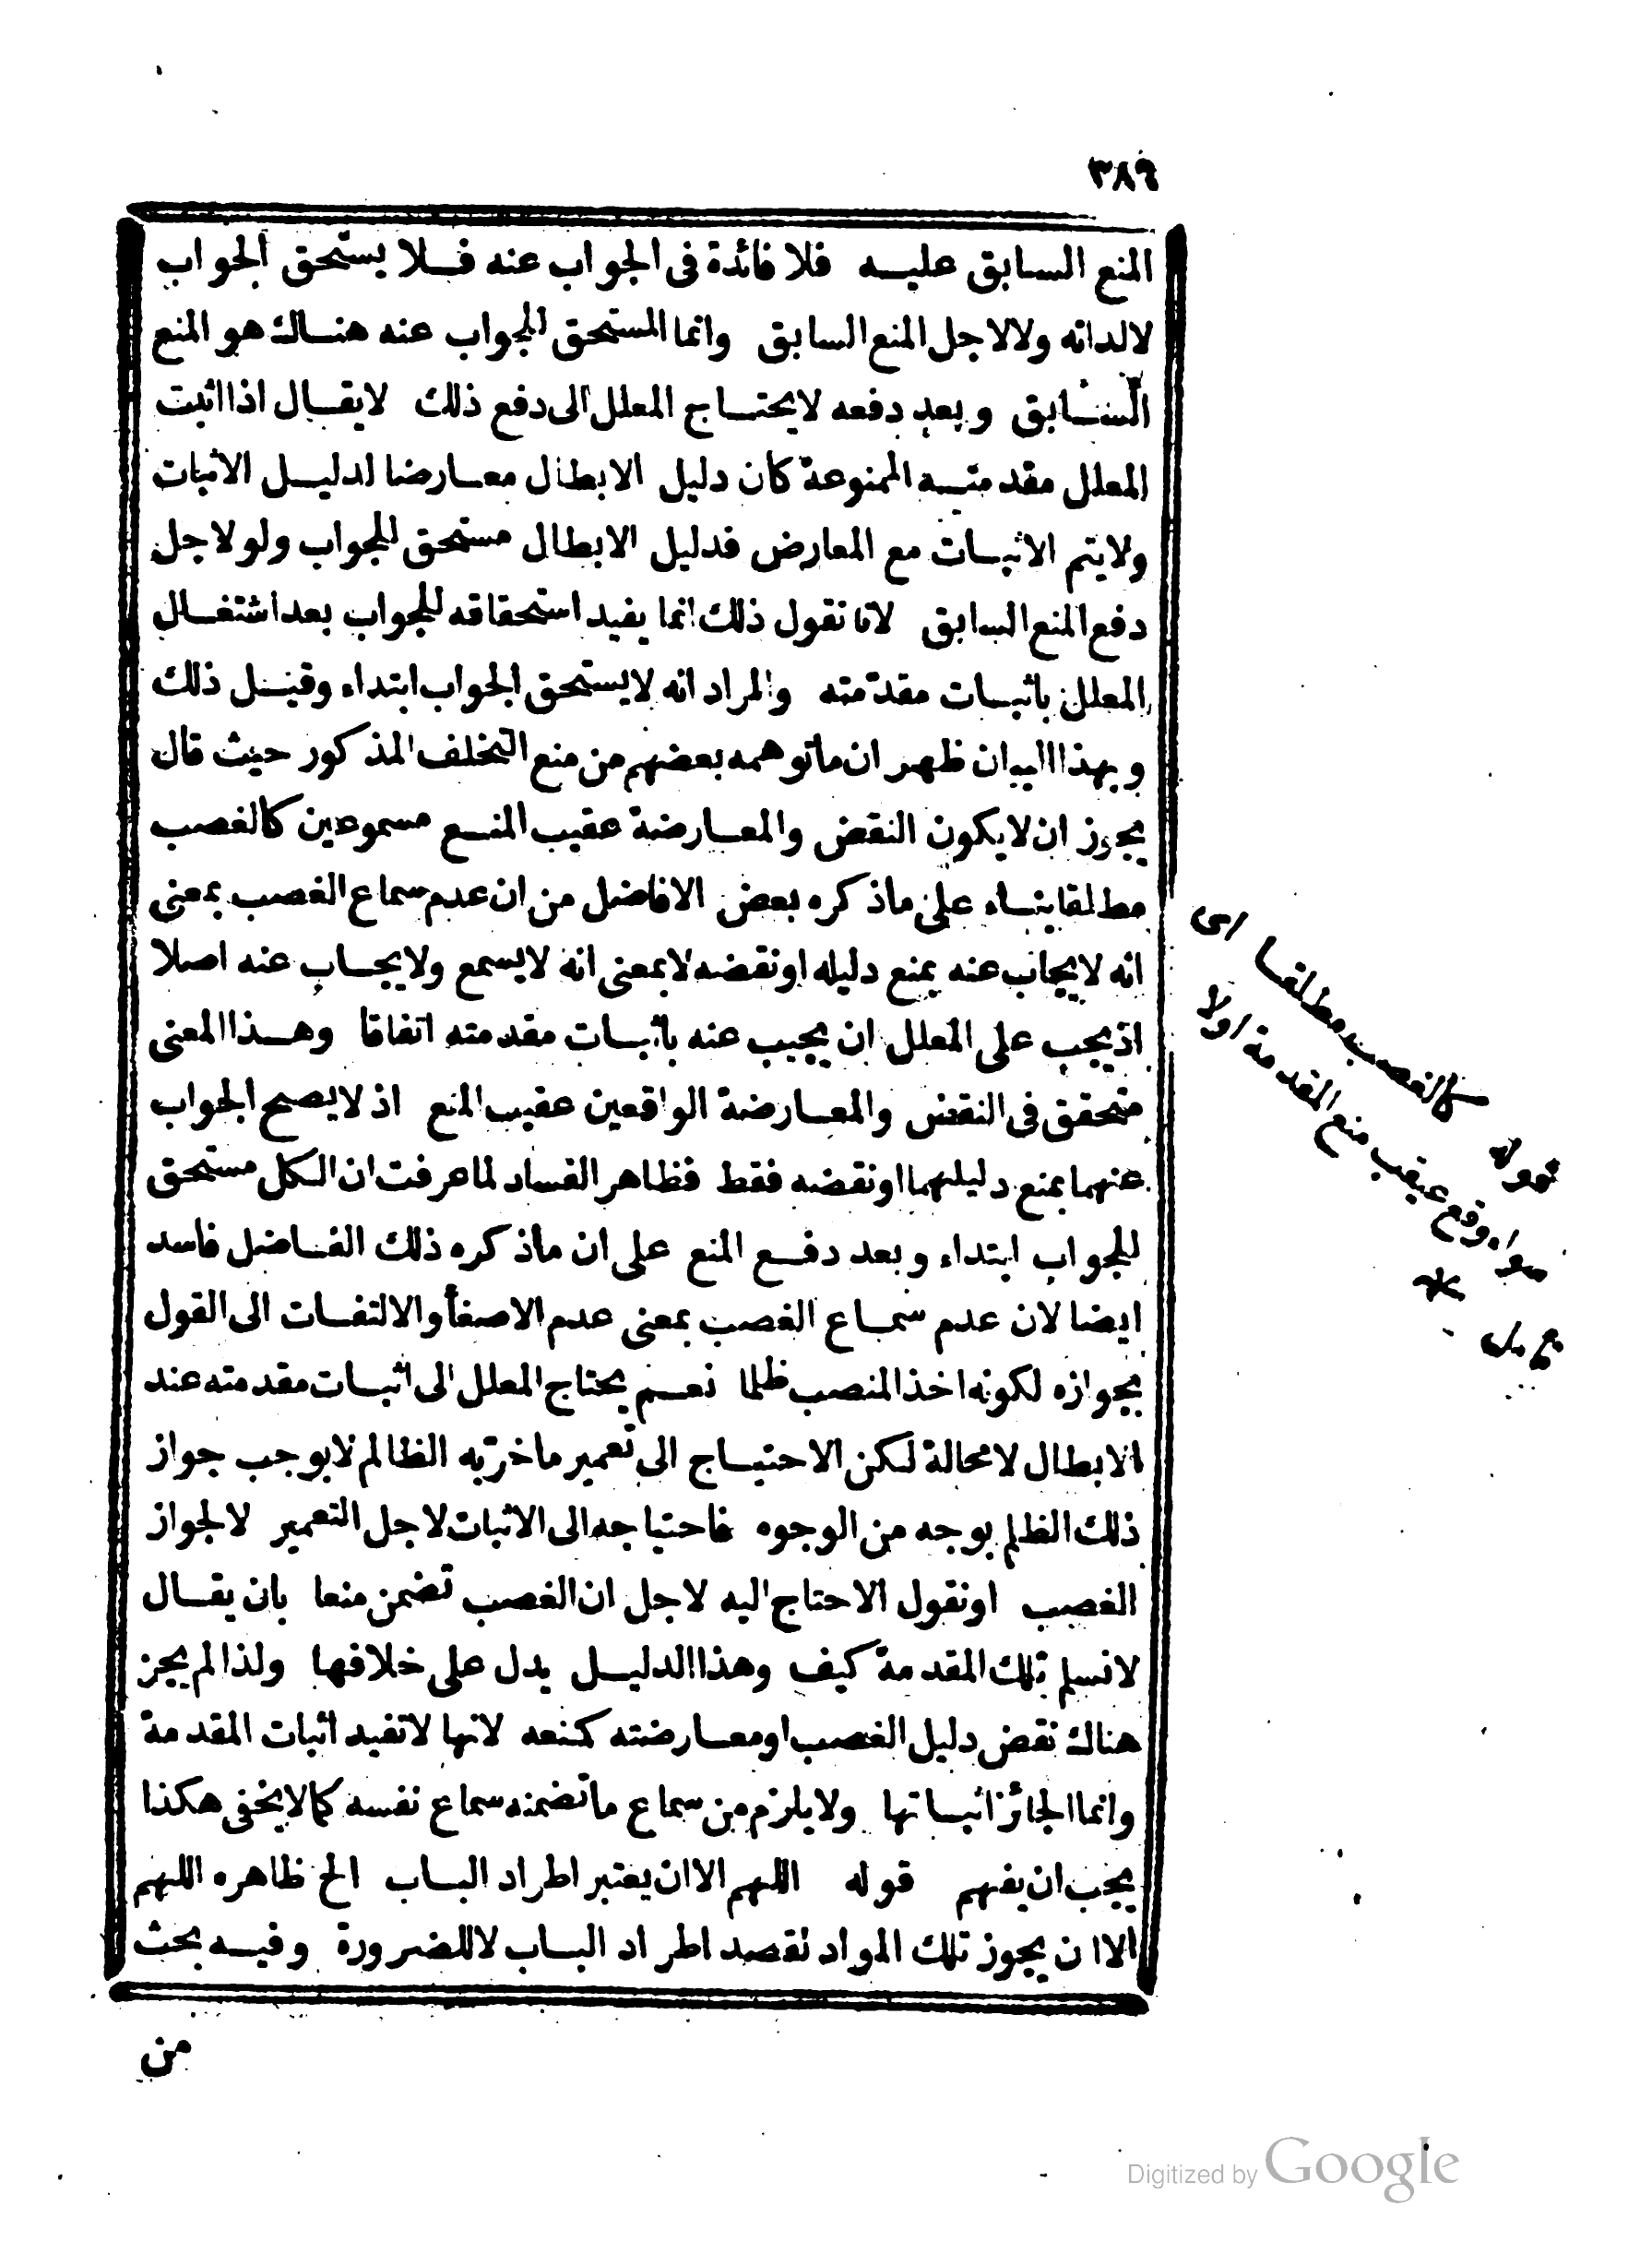 ٣٨٩
المنع السابق عليه فلا فائدة فى الجواب عنه فلا يستحق الجواب
لا لذاته ولا لاجل المنع السابق وانما المستحق للجواب عنه هناك هو المنع
السابق وبعد دفعه لا يحتاج المعلل الى دفع ذلك لا يقال اذا اثبت
المعلل مقدمته الممنوعة كان دليل الابطال معارضا لدليل الاثبات
ولا يتم الاثبات مع المعارض فدليل الابطال مستحق للجواب ولو لاجل
دفع المنع السابق لانا نقول ذلك انما يفيد استحقاقه للجواب بعد اشتغال
المعلل باثبات مقدمته والمراد انه لا يستحق الجواب ابتداء وقبل ذلك
وبهذا البيان ظهر ان ما توهمه بعضهم من منع التخلف المذكور حيث قال
يجوز ان لا يكون النقض والمعارضة عقيب المنع مسموعين كالغصب
مطلقا بناء على ما ذكره بعض الافاضل من ان عدم سماع الغصب بمعنى
انه لا يجاب عنه بمنع دليله او نقضه لا بمعنى انه لا يسمع ولا يجاب عنه اصلا
اذ يجب على المعلل ان يجيب عنه باثبات مقدمته اتفاقا وهذا المعنى
متحقق فى النقض والمعارضة الواقعين عقيب المنع اذ لا يصح الجواب
عنهما بمنع دليلهما او نقضه فقط فظاهر الفساد لما عرفت ان الكل مستحق
للجواب ابتداء وبعد دفع المنع على ان ما ذكره ذلك الفاضل فاسد
ايضا لان عدم سماع الغصب بمعنى عدم الاصغأ والالتفات الى القول
بجوازه لكونه اخذ المنصب ظلما نعم يحتاج المعلل الى اثبات مقدمته عند
الابطال لا محالة لكن الاحتياج الى تعمير ما خربه الظالم لا يوجب جواز
ذلك الظلم بوجه من الوجوه فاحتياجه الى الاثبات لاجل التعمير لا لجواز
الغصب او نقول الاحتاج اليه لاجل ان الغصب تضمن منعا بان يقال
لا نسلم تلك المقدمة كيف وهذا الدليل يدل على خلافها ولذا لم يجز
هناك نقض دليل الغصب او معارضته كمنعه لانها لا تفيد اثبات المقدمة
وانما الجائز اثباتها ولا يلزم من سماع ما تضمنه سماع نفسه كما لا يخفى هكذا
يجب ان يفهم قوله اللهم الا ان يعتبر اطراد الباب الخ ظاهره اللهم
الا ان يجوز تلك المواد بقصد اطراد الباب لا للضرورة وفيه بحث
من
قوله كالغصب مطلقا اى
سواء وقع عيقب منع المقدمة اولا
*
Digitized by Google